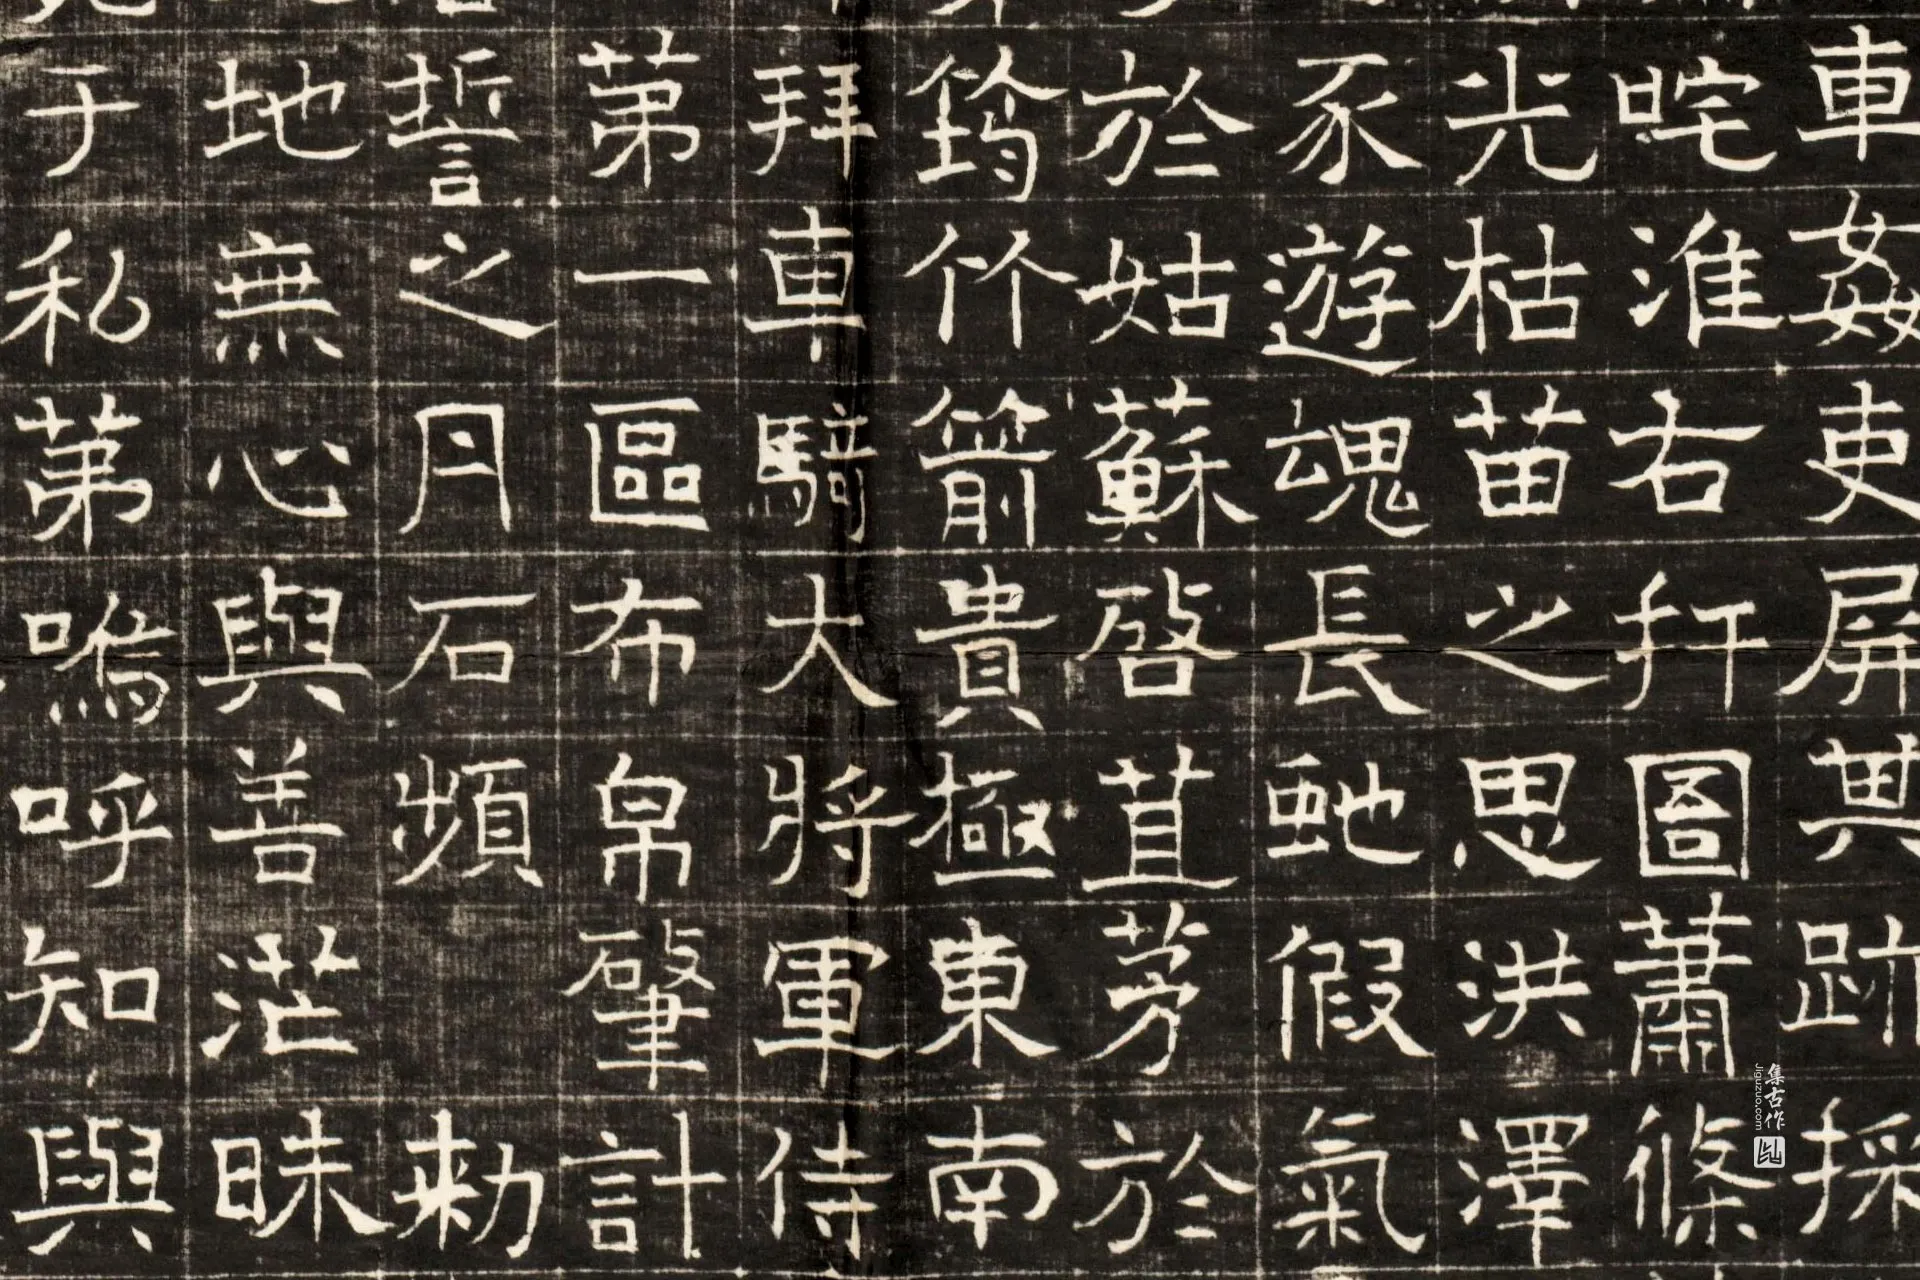 車姦吏屏其跡採
咤淮右扞圄蕭條
光枯苗之思洪澤
豕遊魂長虵假氣
於姑蘇啓苴茅於
筠竹箭貴極東南
拜車騎大將軍侍
第一區布帛肈計
誓之丹石頻勑
地無心與善茫昧
于私第嗚呼知與
集古作
jiguzuo.com